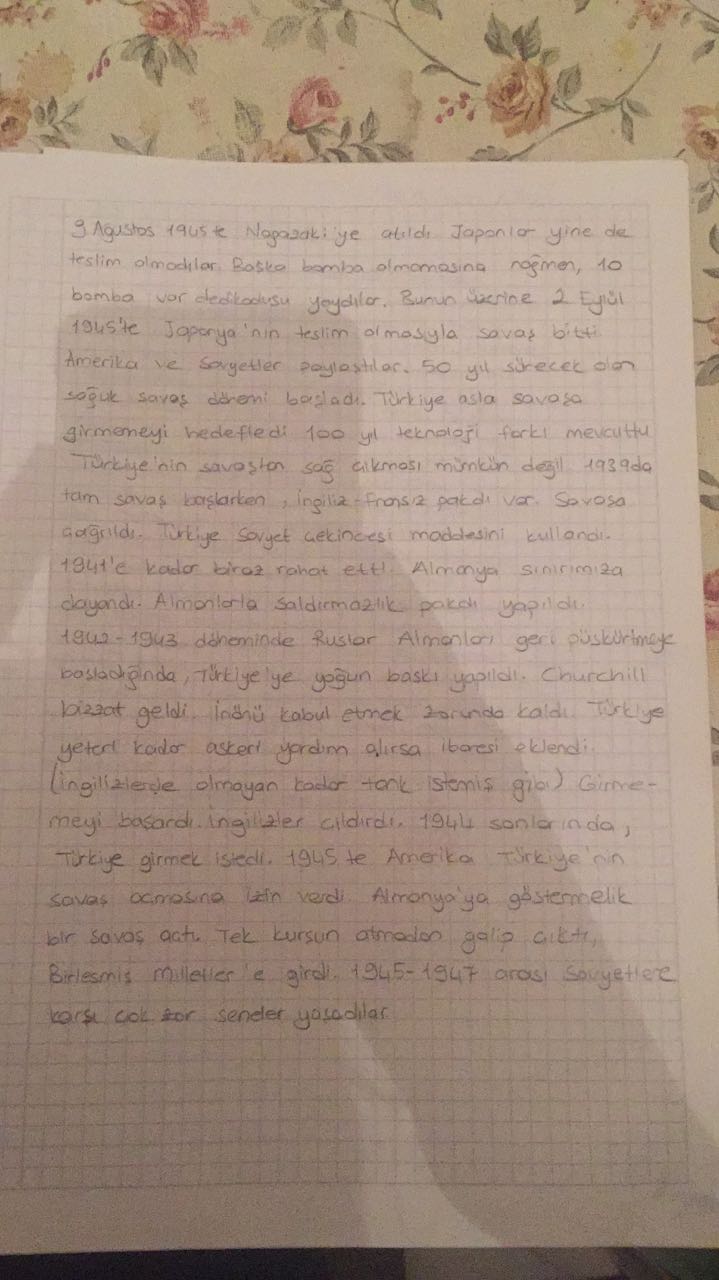 9 Ağustos 1945'te Nagazaki'ye atıldı Japonlar yine de
teslim olmadılar. Başka bomba olmamasına rağmen, 10
bomba var dedikodusu yaydılar. Bunun üzerine 2 Eylül
1945'te Japonya'nın teslim olmasıyla savaş bitti.
Amerika ve Sovyetler paylaştılar. 50 yıl sürecek olan
soğuk savaş dönemi başladı. Türkiye asla savaşa
girmemeyi hedefledi 100 yıl teknoloji farkı mevcuttu
Türkiye'nin savaştan sağ çıkması mümkün değil 1939da
tam savaş başlarken, İngiliz-Fransız pakdı var. Savaşa
çağrıldı. Türkiye Sovyet çekincesi maddesini kullandı.
1941'e kadar biraz rahat etti. Almanya sınırımıza
dayandı. Almanlarla saldırmazlık pakdı yapıldı.
1942-1943 döneminde Ruslar Almanları geri püskürtmeye
başladığında, Türkiye'ye yoğun baskı yapıldı. Churchill
bizzat geldi. İnönü kabul etmek zorunda kaldı. Türkiye
yeteri kadar askeri yardım alırsa ibaresi eklendi.
(İngilizlerde olmayan kadar tank istemiş gibi) Girme-
meyi başardı. İngilizler çıldırdı. 1944 sonlarında,
Türkiye girmek istedi. 1945'te Amerika Türkiye'nin
savaş açmasına izin verdi. Almanya'ya göstermelik
bir savaş açtı. Tek kurşun atmadan galip çıktı,
Birleşmiş Milletler'e girdi. 1945-1947 arası Sovyetlere
karşı çok zor seneler yaşadılar.